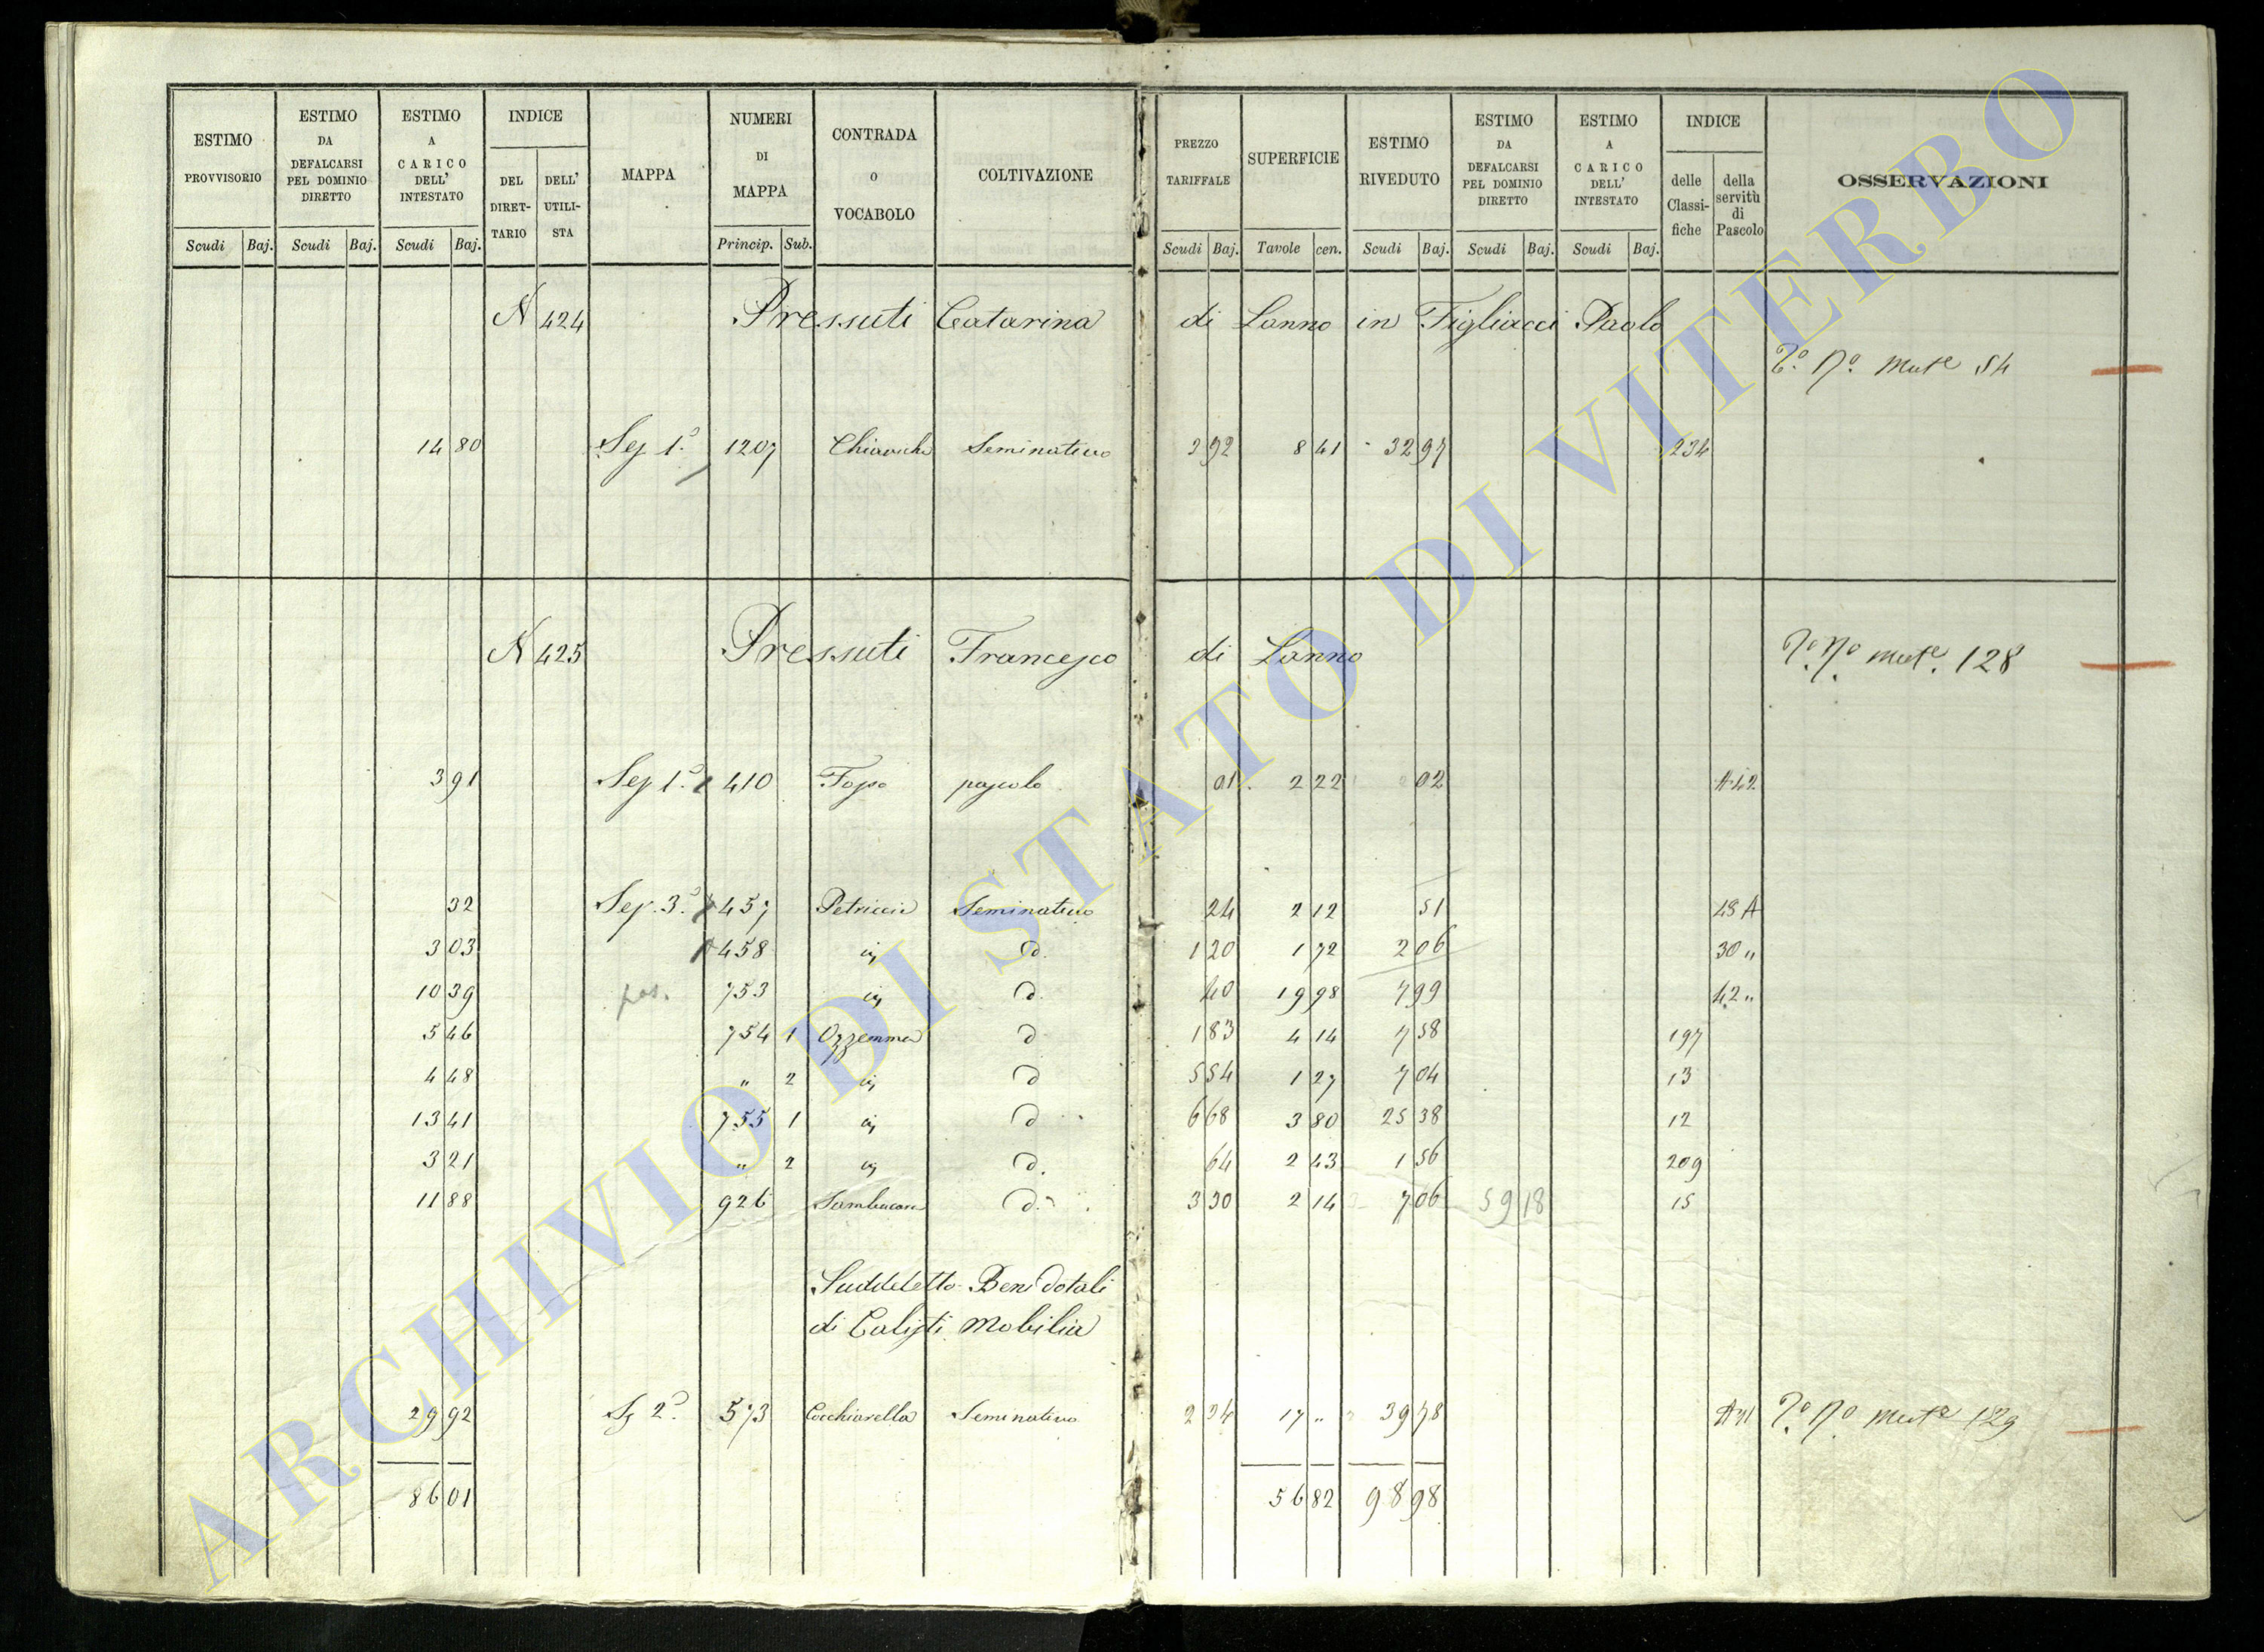 ESTIMO PROVVISORIO ESTIMO DA DEFALCARSI PEL DOMINIO DIRETTO ESTIMO A CARICO DELL' INTESTATO INDICE DEL DIRET-TARIO DELL' UTILI-STA MAPPA NUMERI DI MAPPA CONTRADA O VOCABOLO COLTIVAZIONE PREZZO TARIFFALE SUPERFICIE ESTIMO RIVEDUTO ESTIMO DA DEFALCARSI PEL DOMINIO DIRETTO ESTIMO A CARICO DELL' INTESTATO INDICE delle Classi-fiche della servitù di Pascolo OSSERVAZIONI
Scudi Baj. Scudi Baj. Scudi Baj. Princip. Sub. Scudi Baj. Tavole cen. Scudi Baj. Scudi Baj. Scudi Baj.
N 424 Pressuti Catarina di Lanno in Figliacci Paolo
54
14 80 Sez 1ª 1207 Seminativo 8 41 32 97 234
N 425 Pressuti Francesco di Lanno
128
3 91 Sez 1ª 410 Fosso pascolo 01 2 22 02 A 42
32 Sez. 3ª 457 Petriccie Seminativo 24 2 12 51 48 A
3 03 458 d. 1 20 1 72 2 06 30 "
10 39 pas. 753 d. 40 19 98 7 99 42 "
5 46 754 1 Ozzemma d 1 83 4 14 7 58 197
4 48 " 2 d 5 54 1 27 7 04 13
13 41 755 1 d 6 68 3 80 25 38 12
3 21 " 2 d. 64 2 43 1 56 209
11 88 926 d. 3 30 2 14 7 06 59 18 15
Suddetto Beni Dotali
di Calisti Mobilia
29 92 Sz 2ª 573 Cocchiarella Seminativo 2 34 17 " 39 78 129
86 01 56 82 98 98
ARCHIVIO DI STATO DI VITERBO